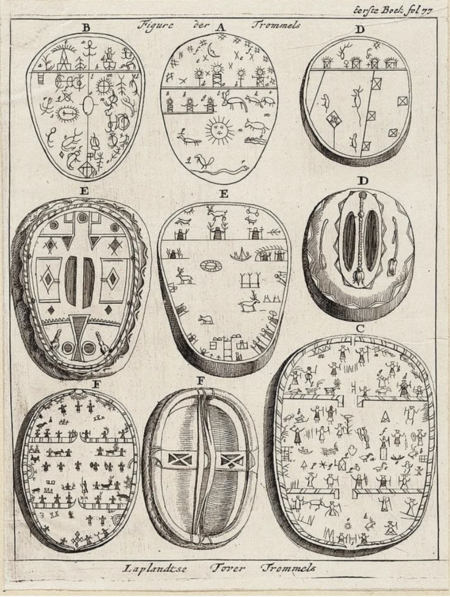 Eerste Boek fol 77
Figure der Trommels
B A D
E E D
C
F F
Laplandtse Tover Trommels